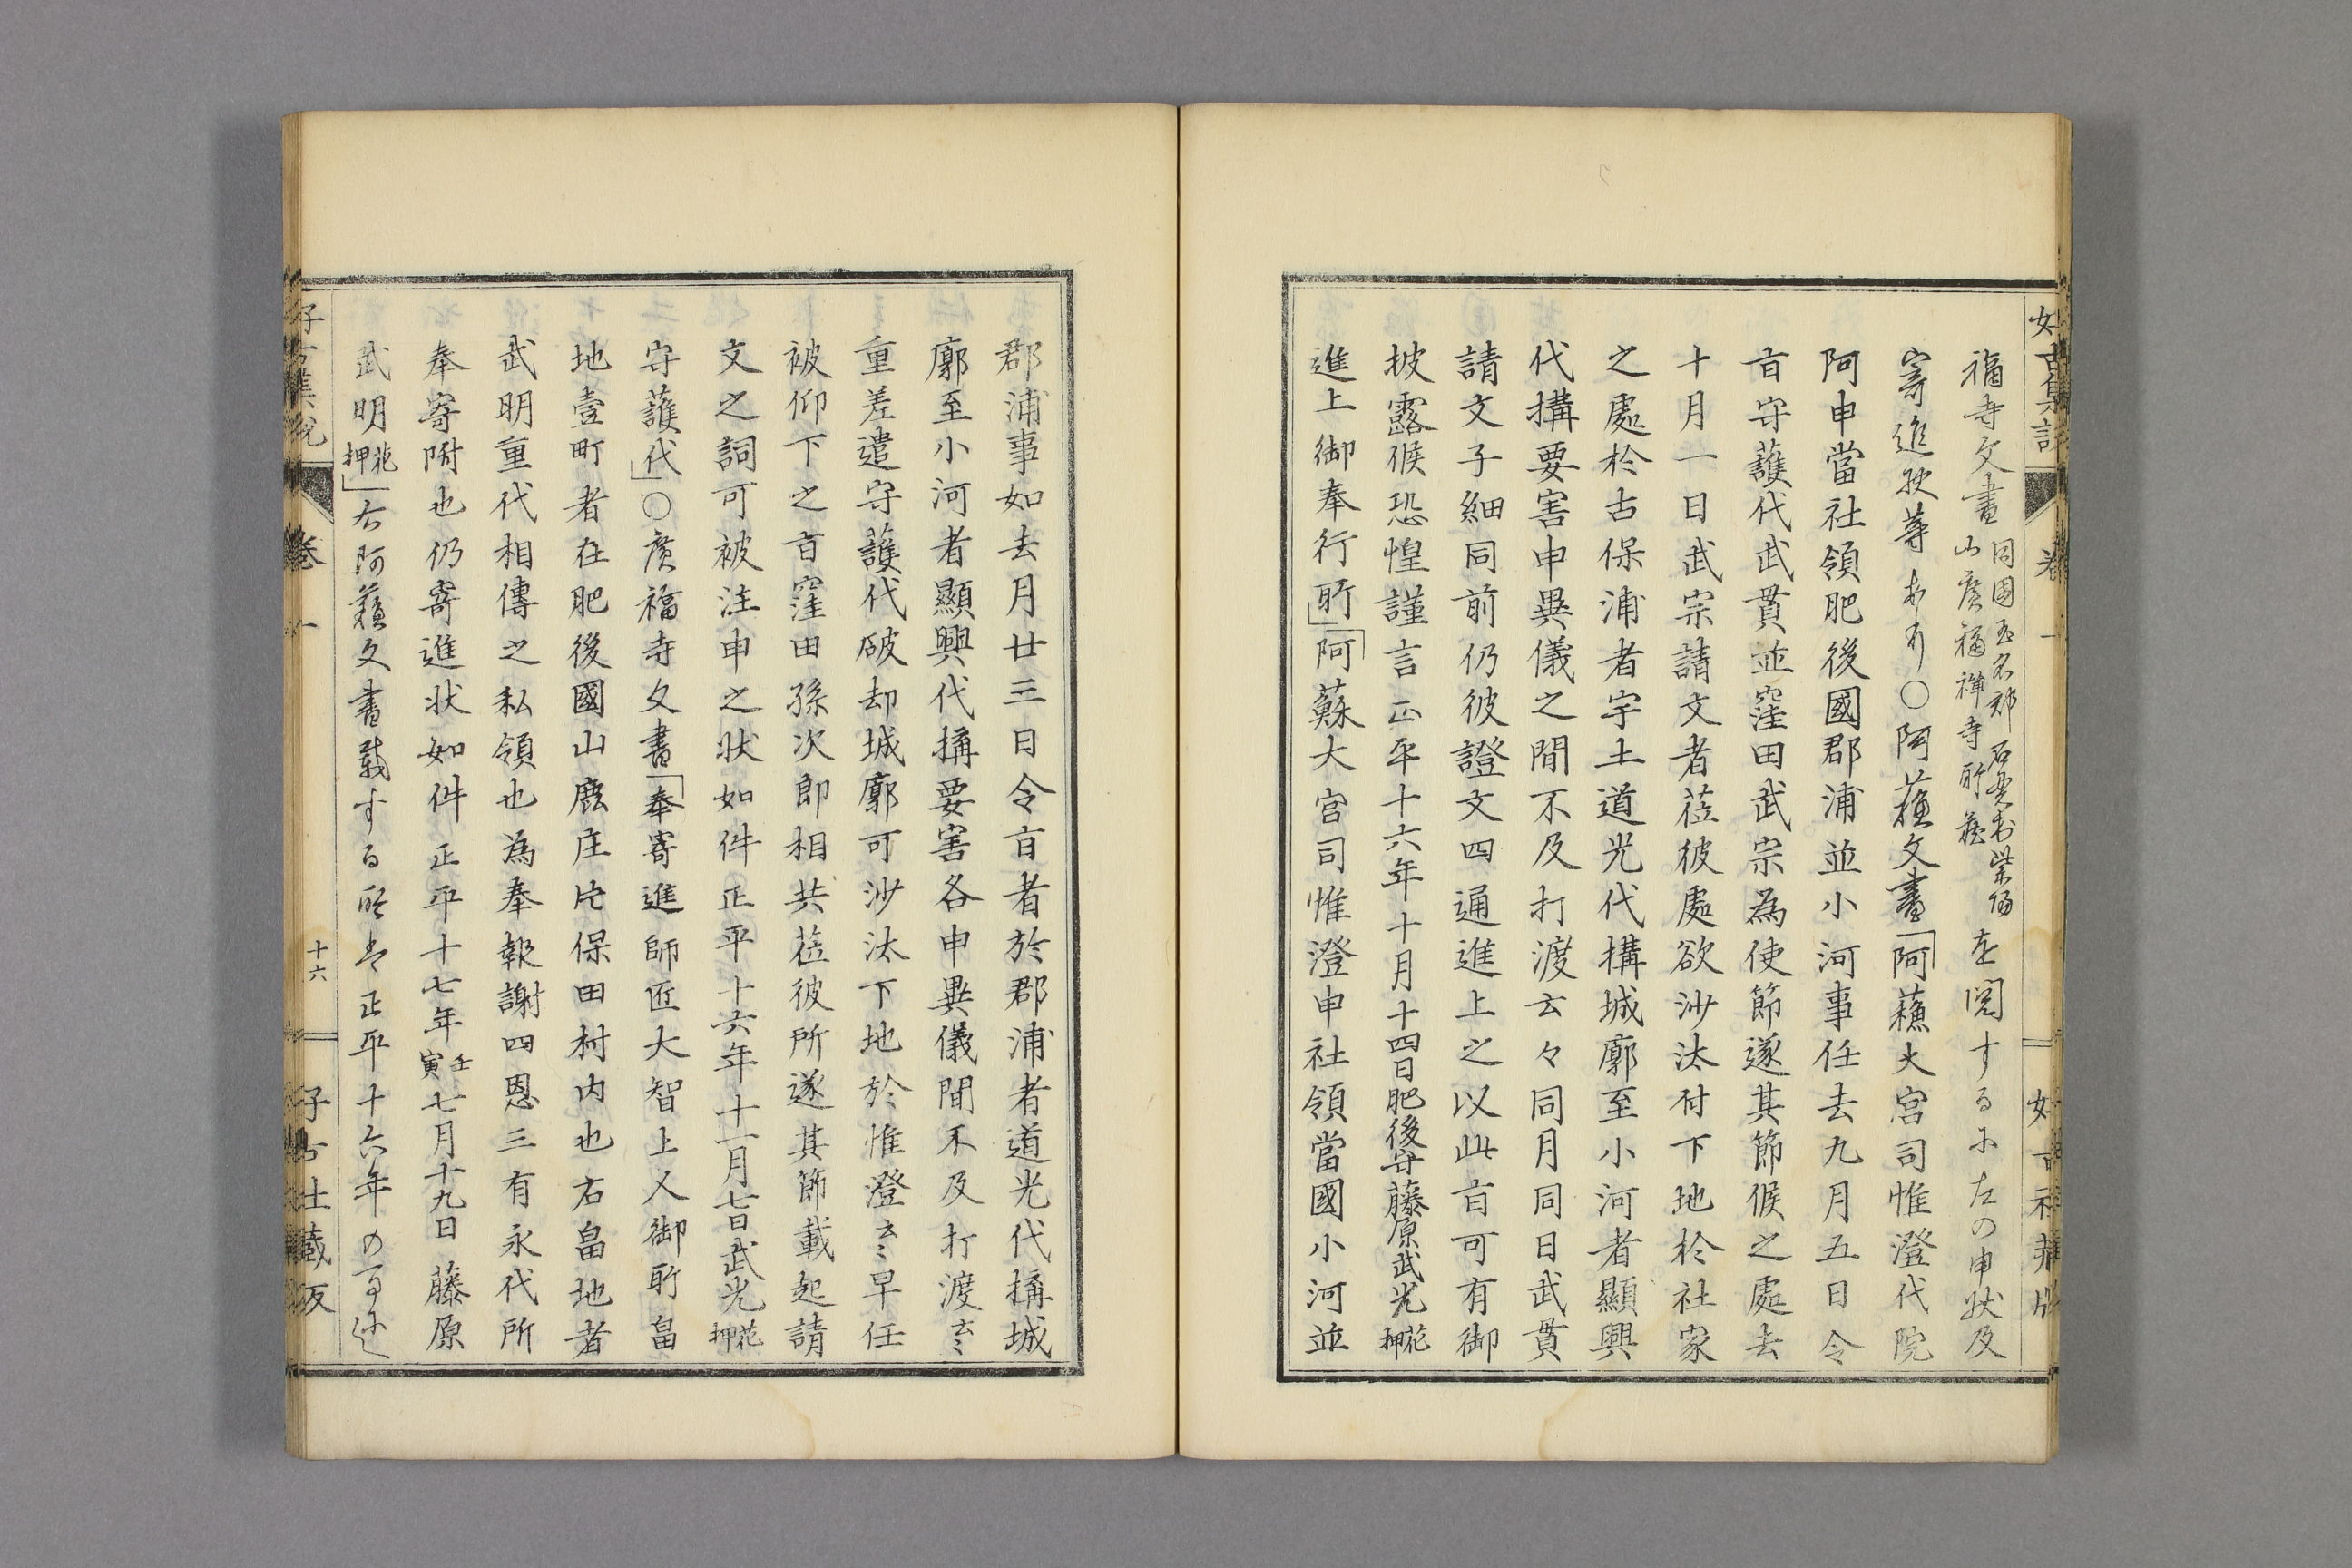 福寺文書同國玉名郡石貫村紫陽山廣福禪寺所藏を閲するに左の申状及
寄進状等あり○阿蘓文書「阿蘓大宮司惟澄代院
阿申當社領肥後國郡浦並小河事任去九月五日令
旨守護代武貫並窪田武宗為使節遂其節候之處去
十月一日武宗請文者莅彼處欲沙汰付下地於社家
之處於古保浦者宇土道光代構城廓至小河者顯興
代搆要害申異儀之間不及打渡云々同月同日武貫
請文子細同前仍彼證文四通進上之以此旨可有御
披露候恐惶謹言正平十六年十月十四日肥後守藤原武光花押
進上御奉行所」「阿蘇大宮司惟澄申社領當國小河並
郡浦事如去月廿三日令旨者於郡浦者道光代搆城
廓至小河者顯興代搆要害各申異儀間不及打渡云〻
重差遣守護代破却城廓可沙汰下地於惟澄云〻早任
被仰下之旨窪田孫次郎相共莅彼所遂其節載起請
文之詞可被注申之状如件正平十六年十一月七日武光花押
守護代」○廣福寺文書「奉寄進師匠大智上人御所畠
地壹町者在肥後國山鹿庄片保田村内也右畠地者
武明重代相傳之私領也為奉報謝四恩三有永代所
奉寄附也仍寄進状如件正平十七年壬寅七月十九日藤原
武明花押」右阿蘓文書載する所は正平十六年の
卷一
十六